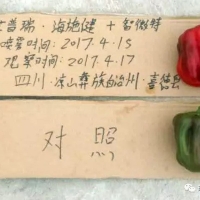 艾普瑞·海施健+智微特
喷雾时间:2017.4.15
观察时间:2017.4.17
四川·凉山彝族自治州·喜德县
对照